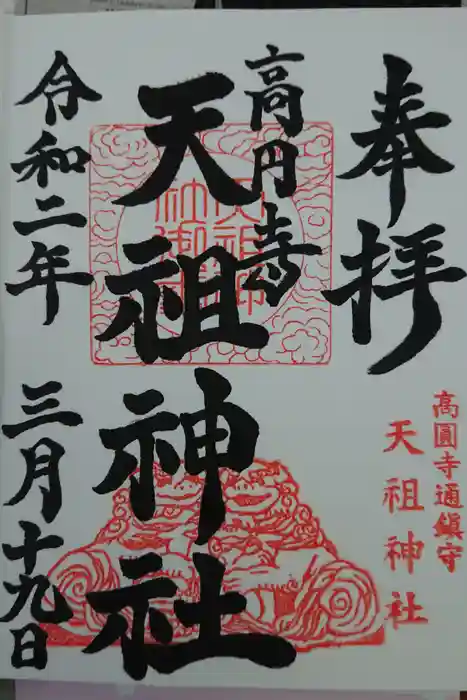 奉拝
高円寺
天祖神社
令和二年
三月十九日
高圓寺通鎮守
天祖神社